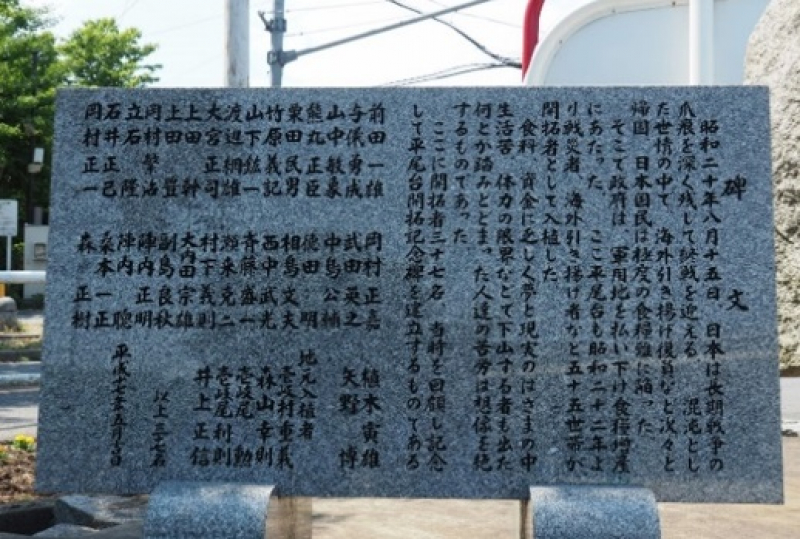 碑文
昭和二十年八月十五日 日本は長期戦争の
爪痕を深く残して終戦を迎える 混沌とし
た世情の中で、海外引き揚げ復員など次々と
帰国 日本国民は極度の食糧難に陥った
そこで政府は、軍用地を払い下げ食糧増産
にあたった ここ平尾台も昭和二十二年よ
り戦災者、海外引き揚げ者など五十五世帯が
開拓者として入植した
食料、資金に乏しく夢と現実のはざまの中
生活苦、体力の限界などで下山する者も出た
何とか踏みとどまった人達の苦労は想像を絶
するものであった
ここに開拓者三十七名、当時を回顧し記念
して平尾台開拓記念碑を建立するものである
前田一雄 岡村正嘉 植木寅雄
与儀勇成 武田英之 矢野博
山中敏象 中島公輔
熊丸正臣 徳田明 地元入植者
粟田民男 相島文夫 壱岐村重義
竹原義記 西中武光 森山幸則
山下紘一 斉藤盛一 壱岐尾勤
渡辺桐雄 瀬来克二 壱岐尾利則
大宮正司 村下義則 井上正信
上田幹 大内田宗雄
上田豊 副島良秋 以上三十七名
岡村繁治 陣内正明
立石隆 陣内聰 平成十七年五月吉日
石井正己 桑本一正
岡村正一 森正樹